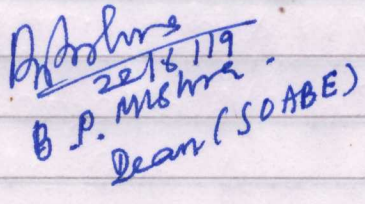 22/8/19
B. P. Mishra.
Dean (SOABE)